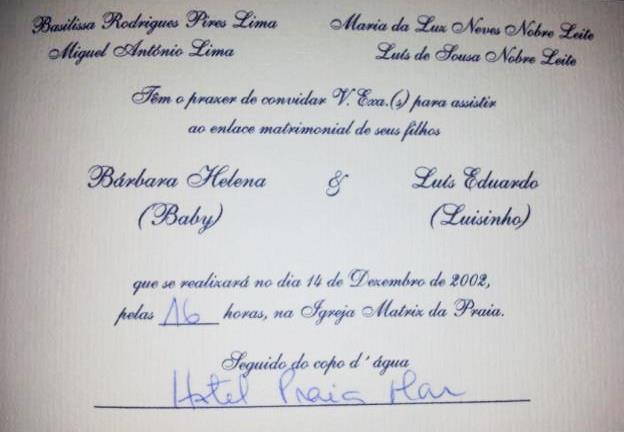 Basilissa Rodrigues Pires Lima
Miguel António Lima
Maria da Luz Neves Nobre Leite
Luís de Sousa Nobre Leite
Têm o prazer de convidar V. Exa.(s) para assistir
ao enlace matrimonial de seus filhos
Bárbara Helena & Luís Eduardo
(Baby) (Luisinho)
que se realizará no dia 14 de Dezembro de 2002,
pelas 16 horas, na Igreja Matriz da Praia.
Seguido do copo d'água
Hotel Praia Mar